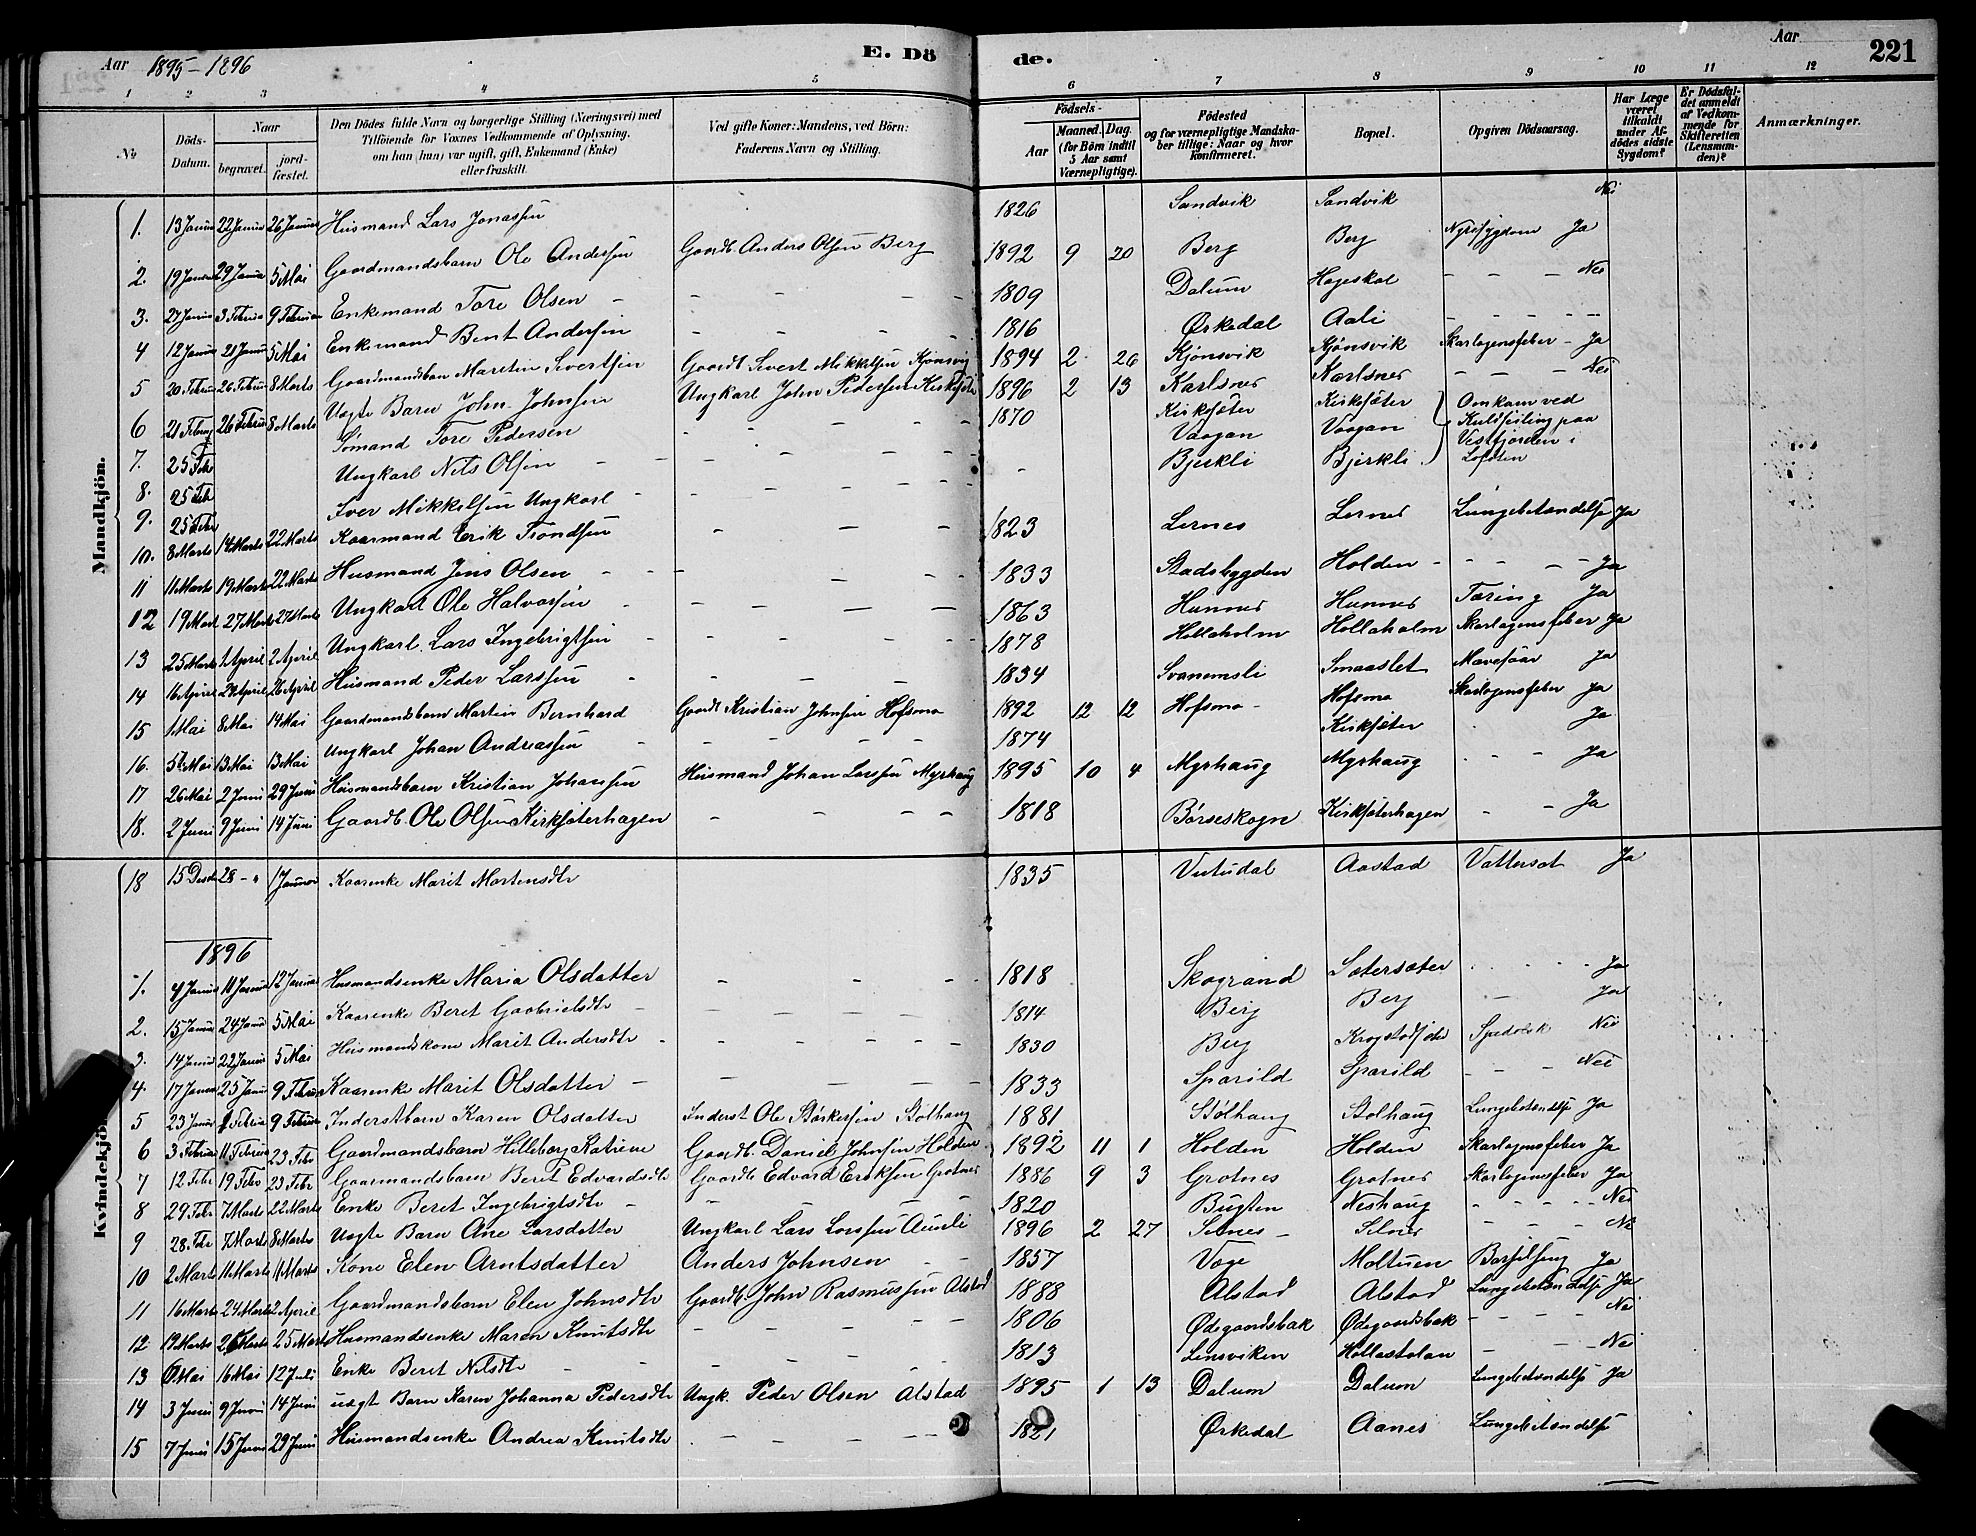 Aar 1895-1896
E. Dö
de.
Aar
221
1 2 3 4 5 6 7 8 9 10 11 12
No
Döds-Datum.
Naar
begravet.
jordfæstet.
Den Dödes fulde Navn og borgerlige Stilling (Næringsvei) med
Tilföiende for Voxnes Vedkommende af Oplysning,
om han (hun) var ugift, gift, Enkemand (Enke)
eller fraskilt.
Ved gifte Koner: Mandens, ved Börn:
Faderens Navn og Stilling.
Födsels-
Aar
Maaned. Dag.
(for Börn indtil
5 Aar samt
Værnepligtige).
Födested
og for værnepligtige Mandskaber tillige: Naar og hvor
konfirmeret.
Bopæl.
Opgiven Dödsaarsag.
Har Læge
været
tilkaldt
under Afdödes sidste
Sygdom?
Er Dödsfaldet anmeldt
af Vedkommende for
Skifteretten
(Lensmanden)?
Anmærkninger.
Mandkjön.
1. 13 Januar 22 Januar 26 Januar Husmand Lars Jonassen 1826 Sandvik Sandvik Nei
2. 19 Januar 29 Januar 5 Mai Gaardmandsbarn Ole Andersen Gaardb. Anders Olsen Berg 1892 9 20 Berg Berg Nyresygdom Ja
3. 27 Januar 3 Februar 9 Februar Enkemand Tore Olsen 1809 Dalum Hageskal Nei
4 12 Januar 21 Januar 5 Mai Enkemand Bent Andersen 1816 Ørkedal Aali
5 20 Februar 26 Februar 8 Marts Gaardmandsbarn Martin Sivertsen Gaardb. Sivert Mikkelsen Kjønsvig 1894 2 26 Kjønsvik Kjønsvik Skarlagensfeber Ja
6 21 Februar 26 Februar 8 Marts Uægte Barn John Johnsen Ungkarl John Pedersen Kirksæter 1896 2 13 Karlsnes Karlsnes Nei
7. 25 Febr Sømand Tore Pedersen 1870 Kirksæter Kirksæter Omkom ved
8. 25 Feb Ungkarl Nils Olsen Vaagan Vaagan Kuldseiling paa
9. 25 Febr Iver Mikkelsen Ungkarl Bjerkli Bjerkli Vestfjorden i
Lofoten
10. 8 Marts 14 Marts 22 Marts Kaarmand Erik Trondsen 1823 Lernes Lernes Lungebetændelse Ja
11 11 Marts 19 Marts 22 Marts Husmand Jens Olsen 1833 Stadsbygden Holden Ja
12 19 Mart 27 Marts 27 Marts Ungkarl Ole Halvorsen 1863 Hunnes Hunnes Tæring Ja
13 25 Marts 1 April 2 April Ungkarl Lars Ingebrigtsen 1878 Hollaholm Hollaholm Skarlagensfeber Ja
14 16 April 24 April 26 April Husmand Peder Larssen 1834 Svanemsli Smaaslet Mavesaar Ja
15 1 Mai 8 Mai 14 Mai Gaardmandsbarn Martin Bernhard Gaardb Kristian Johnsen Hofsmo 1892 12 12 Hofsmo Hofsmo Skarlagensfeber Ja
16. 5te Mai 13 Mai 13 Mai Ungkarl Johan Andreassen 1874 Kirksæter Ja
17 26 Mai 2 Juni 29 Juni Husmandsbarn Kristian Johansen Husmand Johan Larssen Myrhaug 1895 10 4 Myrhaug Myrhaug Ja
18. 2 Juni 9 Juni 14 Juni Gaardb. Ole Olsen Kirksæterhagen 1818 Børseskogn Kirksæterhagen Ja
Kvindekjön
18 15 Decbr 28 - " 1 Januar Kaarenke Marit Mortensdtr 1835 Vutudal Aastad Vattersot Ja
1896
1. 4 Januar 11 Januar 12 Januar Husmandsenke Maria Olsdatter 1818 Skogrand Sætersæter Ja
2. 15 Januar 24 Januar 5 Mai Kaarenke Beret Gabrielsdtr 1814 Berg Berg Ja
3. 14 Januar 22 Januar 5 Mai Husmandskone Marit Andersdtr 1830 Berg Krogstadsæter Spedalsk Nei
4. 17 Januar 25 Januar 9 Februar Kaarenke Marit Olsdatter 1833 Sparild Sparild Nei
5 23 Januar 1 Februar 9 Februar Inderstbarn Karen Olsdatter Inderst Ole Størkersen Stølhaug 1881 Stølhaug Stølhaug Lungebetændelse Ja
6 3 Februar 11 Februar 23 Febr Gaardmandsbarn Hilleborg Katrine Gaardb. Daniel Johnsen Holden 1892 11 1 Holden Holden Skarlagensfeber Ja
7 12 Febr 19 Febr 23 Febr Gaarmandsbarn Beret Edvardsdtr Gaardb Edvard Eriksen Grotnes 1886 9 3 Grotnes Grotnes Skarlagensfeber Ja
8 29 Febr 7 Marts 22 Marts Enke Beret Ingebrigtsdtr 1820 Bugten Neshaug Nei
9 28. Febr 7 Marts 8 Marts Uægte Barn Ane Larsdatter Ungkarl Lars Larssen Aunli 1896 2 27 Selnes Selnes Nei
10 2 Mart 11 Marts 11 Marts Kone Elen Arntsdatter Anders Johnsen 1857 Vage Moltuen Barselseng Ja
11 16 Marts 24 Marts 2 April Gaardmandsbarn Elen Johnsdtr Gaardb. John Rasmussen Alstad 1888 Alstad Alstad Lungebetændelse Ja
12 19 Marts 26 Marts 25 Marts Husmandsenke Maren Knutsdtr 1806 Ødegaardsbak Ødegaardsbak Nei
13 6 Mai 16 Mai 12 Juli Enke Beret Nilsdtr 1813 Lensviken Hollastolan Nei
14 3 Juni 9 Juni 14 Juni uægt Barn Karen Johanna Pedersdtr Ungk. Peder Olsen Alstad 1895 1 13 Dalum Dalum Lungebetændelse Ja
15 7 Juni 15 Juni 29 Juni Husmandsenke Andrea Knutsdtr 1821 Ørkedal Aanes Lungebetændelse